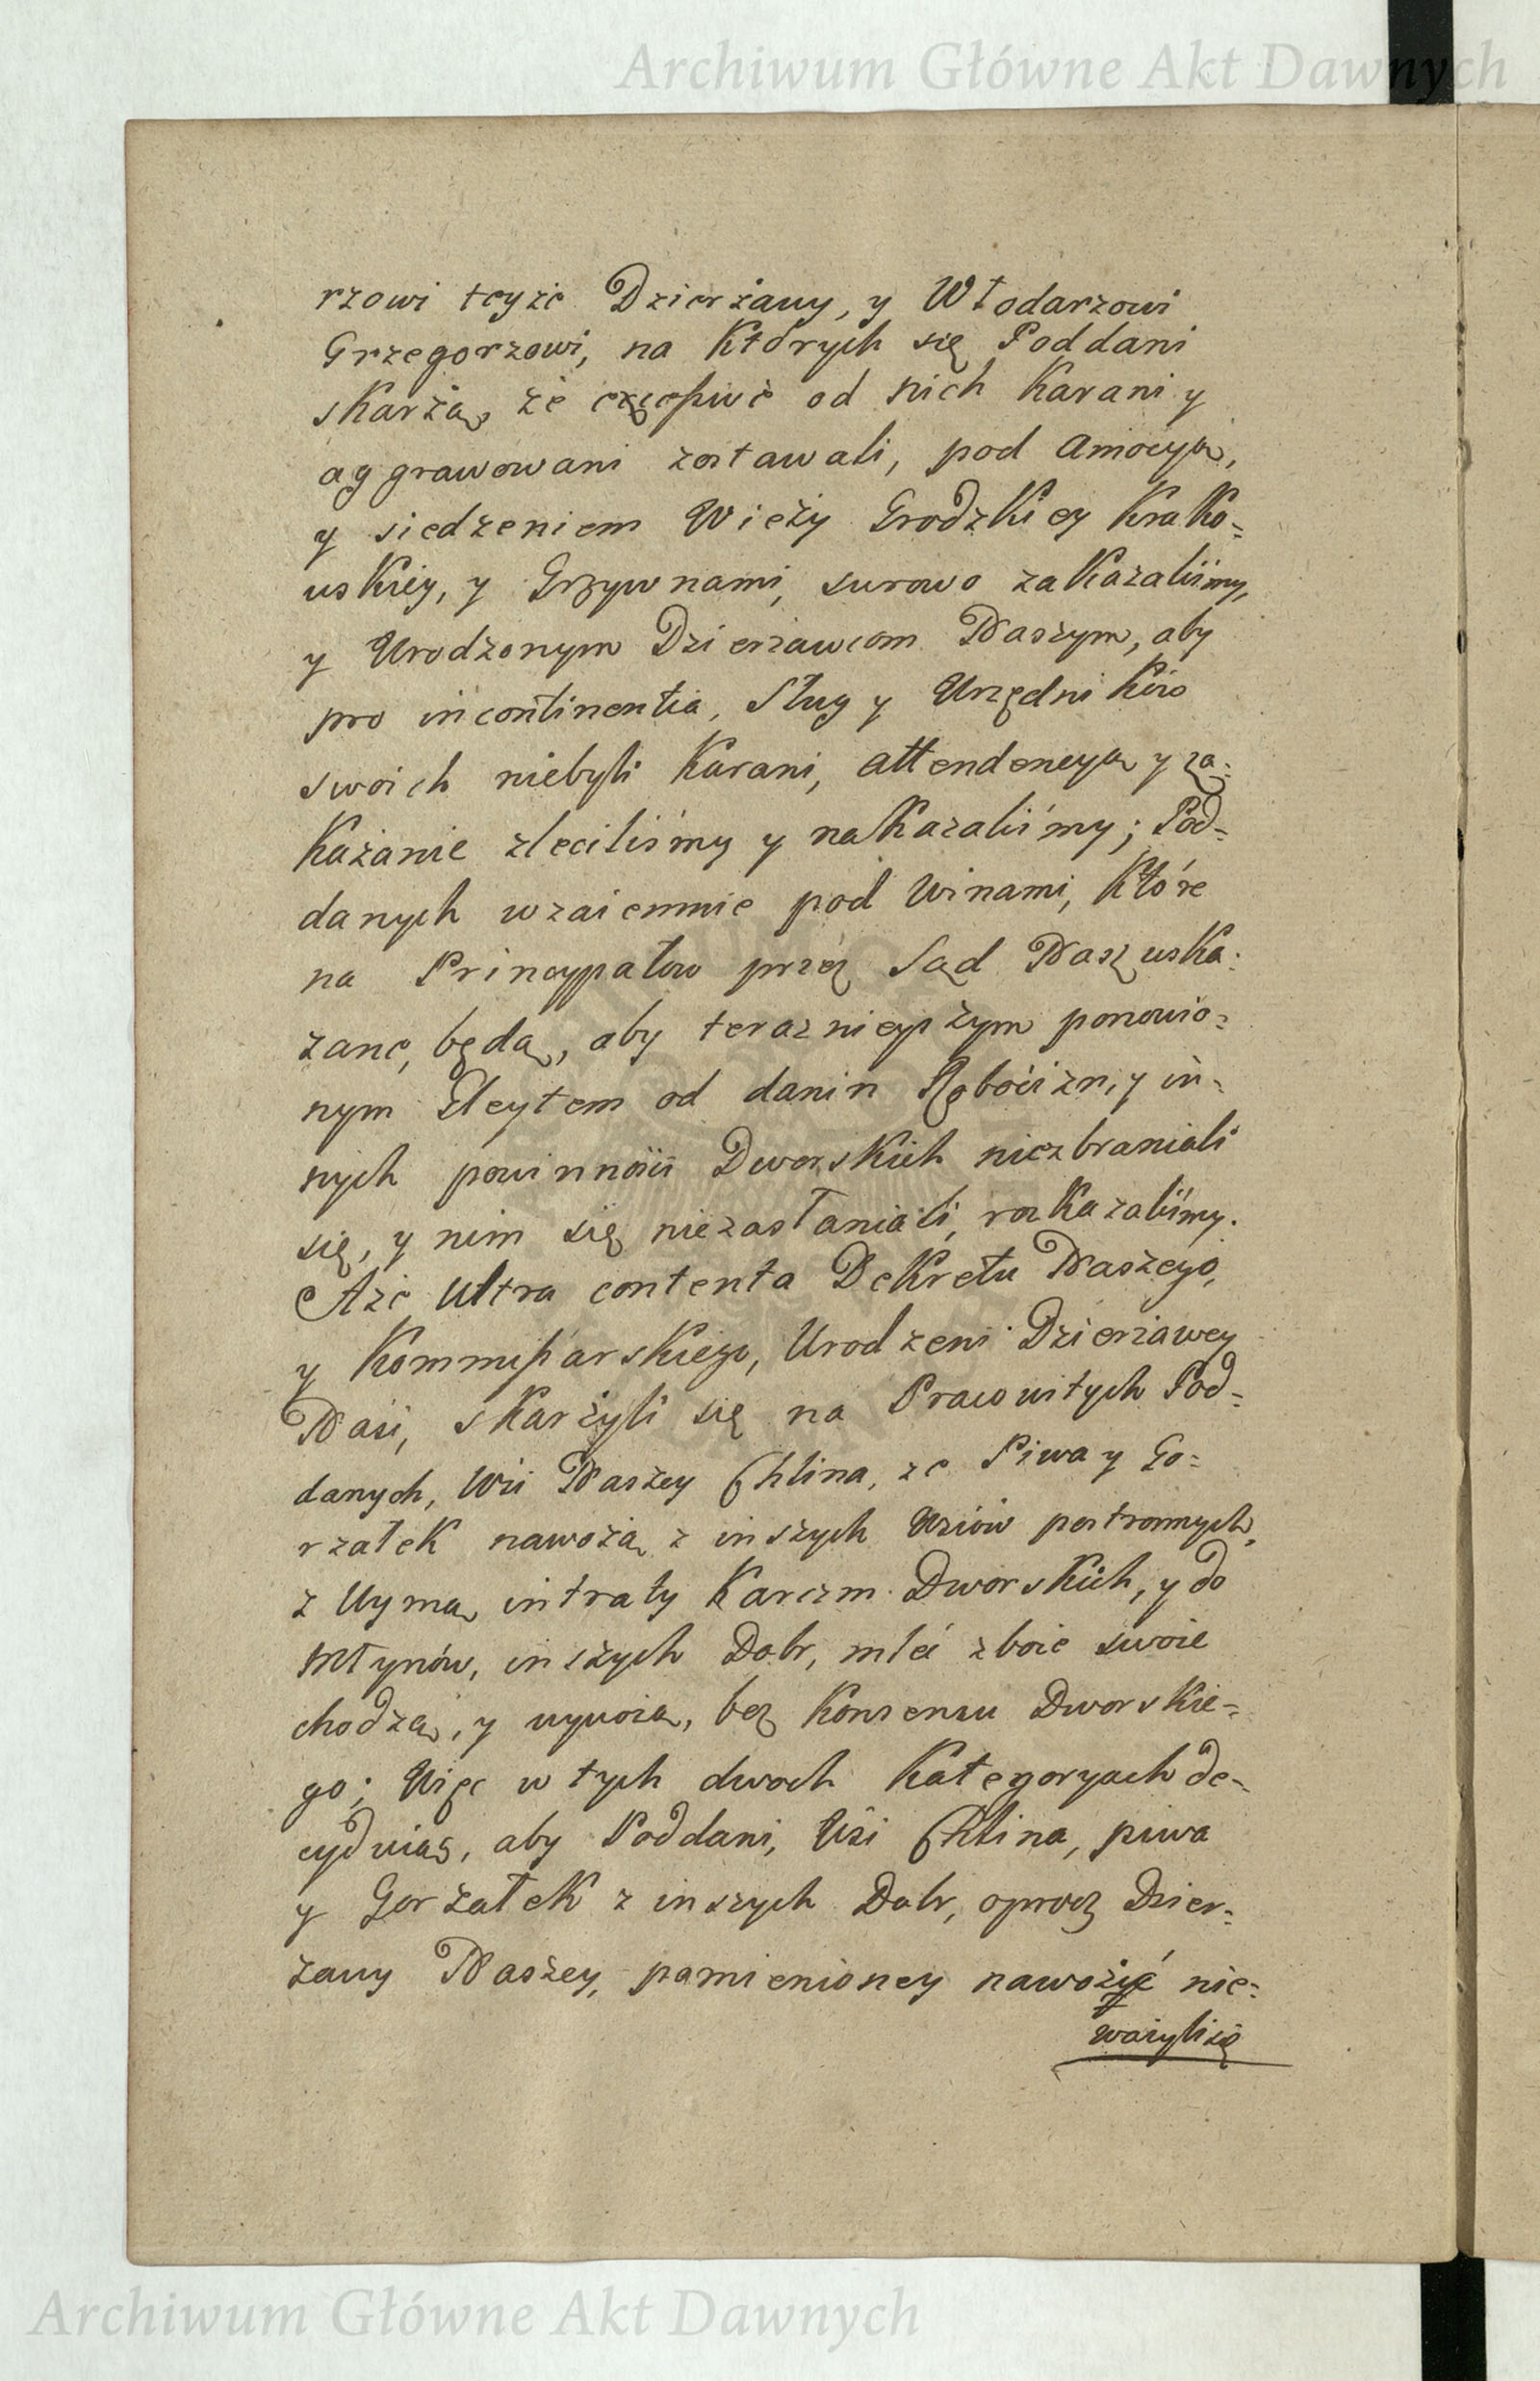 Archiwum Główne Akt Dawnych
rzowi teyże Dzierżawy, y Włodarzowi
Grzegorzowi, na których się Poddani
skarżą, że od nich karani y
aggrawowani zostawali, pod amocyą,
y siedzeniem Wieży Grodzkiey Krako-
wskiey, y Grzywnami, surowo zakazaliśmy,
y Urodzonym Dzierżawcom Naszym, aby
pro incontinentia, Sług y Urzędników
swoich niebyli karani, attendencyą y za-
każanie zleciliśmy y nakazaliśmy; Pod-
danych wzaiemnie pod winami, które
na Pryncypałow przez Sąd Nasz wska-
zane, będą, aby teraznieyszym ponowio-
nym Gleytem od danin Robocizn, y in-
nych powinności Dworskich niezbraniali
się, y nim się niezasłaniali, rozkazaliśmy.
A że ultra contenta Dekretu Naszego,
y Kommissarskiego, Urodzeni Dzierżawcy
Nasi, skarżyli się na Pracowitych Pod-
danych, Wsi Naszey Chlina, że Piwa y Go-
rzałek nawożą z inszych Wsiów postronnych,
z Uymą intraty Karczm Dworskich, y do
Młynów, inszych Dobr, mleć zboże swoie
chodzą, y wywożą, bez konsensu Dworskie-
go; Więc w tych dwoch kategoryach de-
cyduiąc, aby Poddani, Wsi Chlina, piwa
y Gorzałek z inszych Dobr, oprocz Dzier-
żawy Naszey, pomienioney nawozić nie-
ważyli się
Archiwum Główne Akt Dawnych